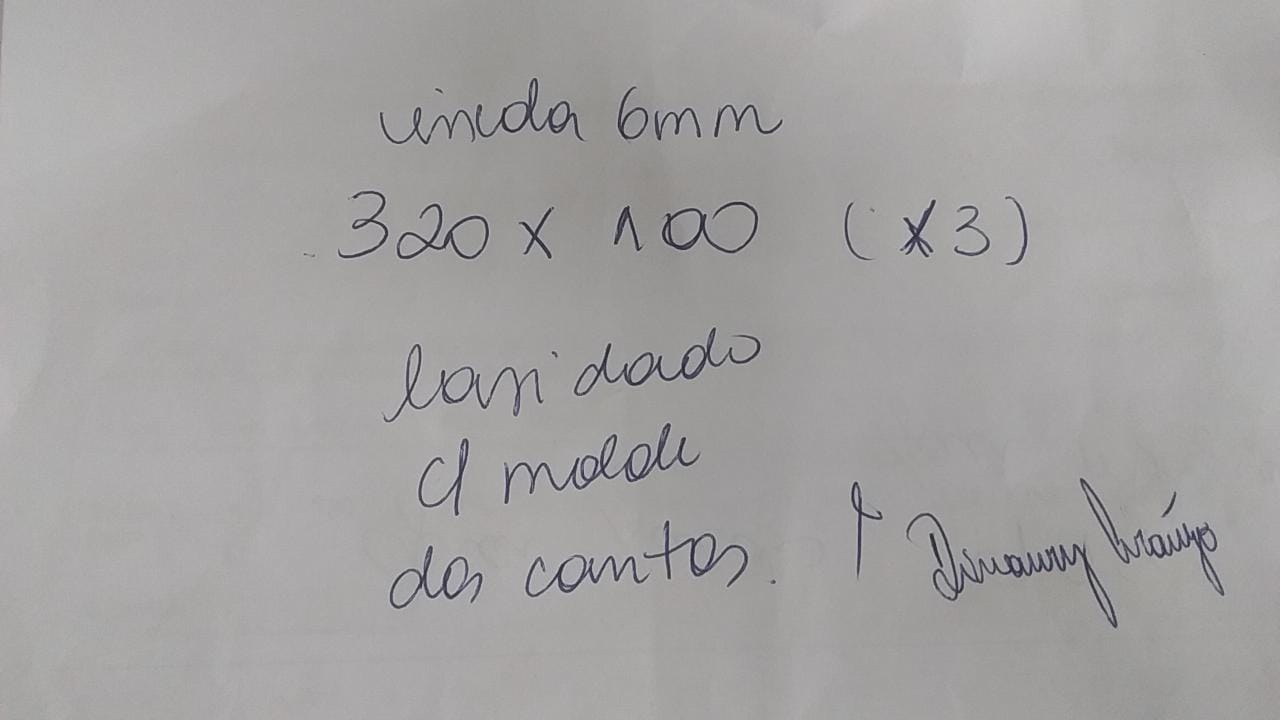 6mm
320 x 100 (x3)
lapidado
c/ molde
dos cantos.
Araújo